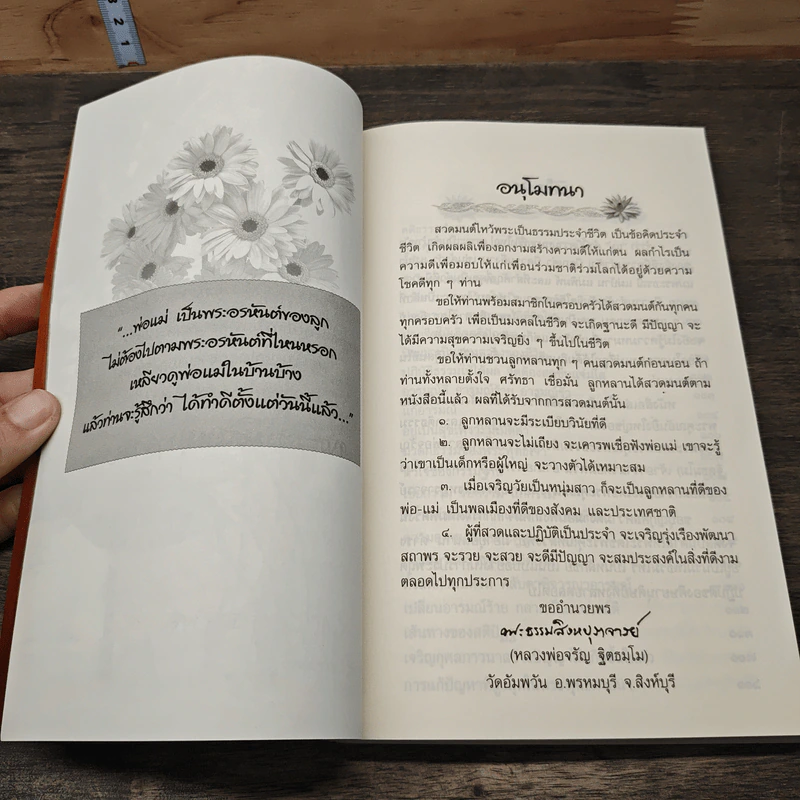 3
2
1
"...พ่อแม่ เป็นพระอรหันต์ของลูก
ไม่ต้องไปตามพระอรหันต์ที่ไหนหรอก
เหลียวดูพ่อแม่ในบ้านบ้าง
แล้วท่านจะรู้สึกว่า ได้ทำดีตั้งแต่วันนี้แล้ว..."
อนุโมทนา
สวดมนต์ไหว้พระเป็นธรรมประจำชีวิต เป็นข้อคิดประจำ
ชีวิต เกิดผลผลิเพื่องอกงามสร้างความดีให้แก่ตน ผลกำไรเป็น
ความดีเพื่อมอบให้แก่เพื่อนร่วมชาติร่วมโลกได้อยู่ด้วยความ
โชคดีทุก ๆ ท่าน
ขอให้ท่านพร้อมสมาชิกในครอบครัวได้สวดมนต์กันทุกคน
ทุกครอบครัว เพื่อเป็นมงคลในชีวิต จะเกิดฐานะดี มีปัญญา จะ
ได้มีความสุขความเจริญยิ่ง ๆ ขึ้นไปในชีวิต
ขอให้ท่านชวนลูกหลานทุก ๆ คนสวดมนต์ก่อนนอน ถ้า
ท่านทั้งหลายตั้งใจ ศรัทธา เชื่อมั่น ลูกหลานได้สวดมนต์ตาม
หนังสือนี้แล้ว ผลที่ได้รับจากการสวดมนต์นั้น
๑. ลูกหลานจะมีระเบียบวินัยที่ดี
๒. ลูกหลานจะไม่เถียง จะเคารพเชื่อฟังพ่อแม่ เขาจะรู้
ว่าเขาเป็นเด็กหรือผู้ใหญ่ จะวางตัวได้เหมาะสม
๓. เมื่อเจริญวัยเป็นหนุ่มสาว ก็จะเป็นลูกหลานที่ดีของ
พ่อ-แม่ เป็นพลเมืองที่ดีของสังคม และประเทศชาติ
๔. ผู้ที่สวดและปฏิบัติเป็นประจำ จะเจริญรุ่งเรืองพัฒนา
สถาพร จะรวย จะสวย จะดีมีปัญญา จะสมประสงค์ในสิ่งที่ดีงาม
ตลอดไปทุกประการ
ขออำนวยพร
พระธรรมสิงหบุราจารย์
(หลวงพ่อจรัญ ฐิตธมฺโม)
วัดอัมพวัน อ.พรหมบุรี จ.สิงห์บุรี